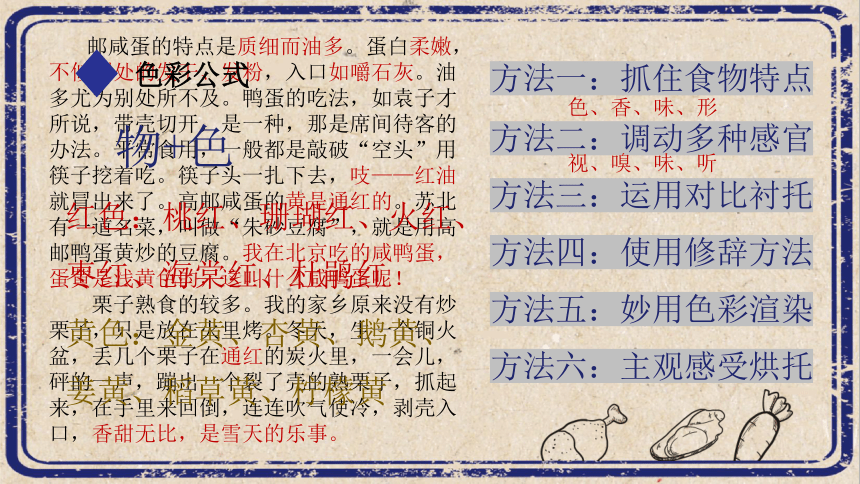 邮咸蛋的特点是质细而油多。蛋白柔嫩，
不似别处的发干、发粉，入口如嚼石灰。油
多尤为别处所不及。鸭蛋的吃法，如袁子才
所说，带壳切开，是一种，那是席间待客的
办法。平常食用，一般都是敲破“空头”用
筷子挖着吃。筷子头一扎下去，吱——红油
就冒出来了。高邮咸蛋的黄是通红的。苏北
有一道名菜，叫做“朱砂豆腐”，就是用高
邮鸭蛋黄炒的豆腐。我在北京吃的咸鸭蛋，
蛋黄是浅黄色的，这叫什么咸鸭蛋呢！
栗子熟食的较多。我的家乡原来没有炒
栗子，只是放在火里烤。冬天，生一个铜火
盆，丢几个栗子在通红的炭火里，一会儿，
砰的一声，蹦出一个裂了壳的熟栗子，抓起
来，在手里来回倒，连连吹气使冷，剥壳入
口，香甜无比，是雪天的乐事。
色彩公式
物+色
红色：桃红、珊瑚红、火红、
枣红、海棠红、杜鹃红
黄色：金黄、杏黄、鹅黄、
姜黄、稻草黄、柠檬黄
方法一：抓住食物特点
色、香、味、形
方法二：调动多种感官
视、嗅、味、听
方法三：运用对比衬托
方法四：使用修辞方法
方法五：妙用色彩渲染
方法六：主观感受烘托